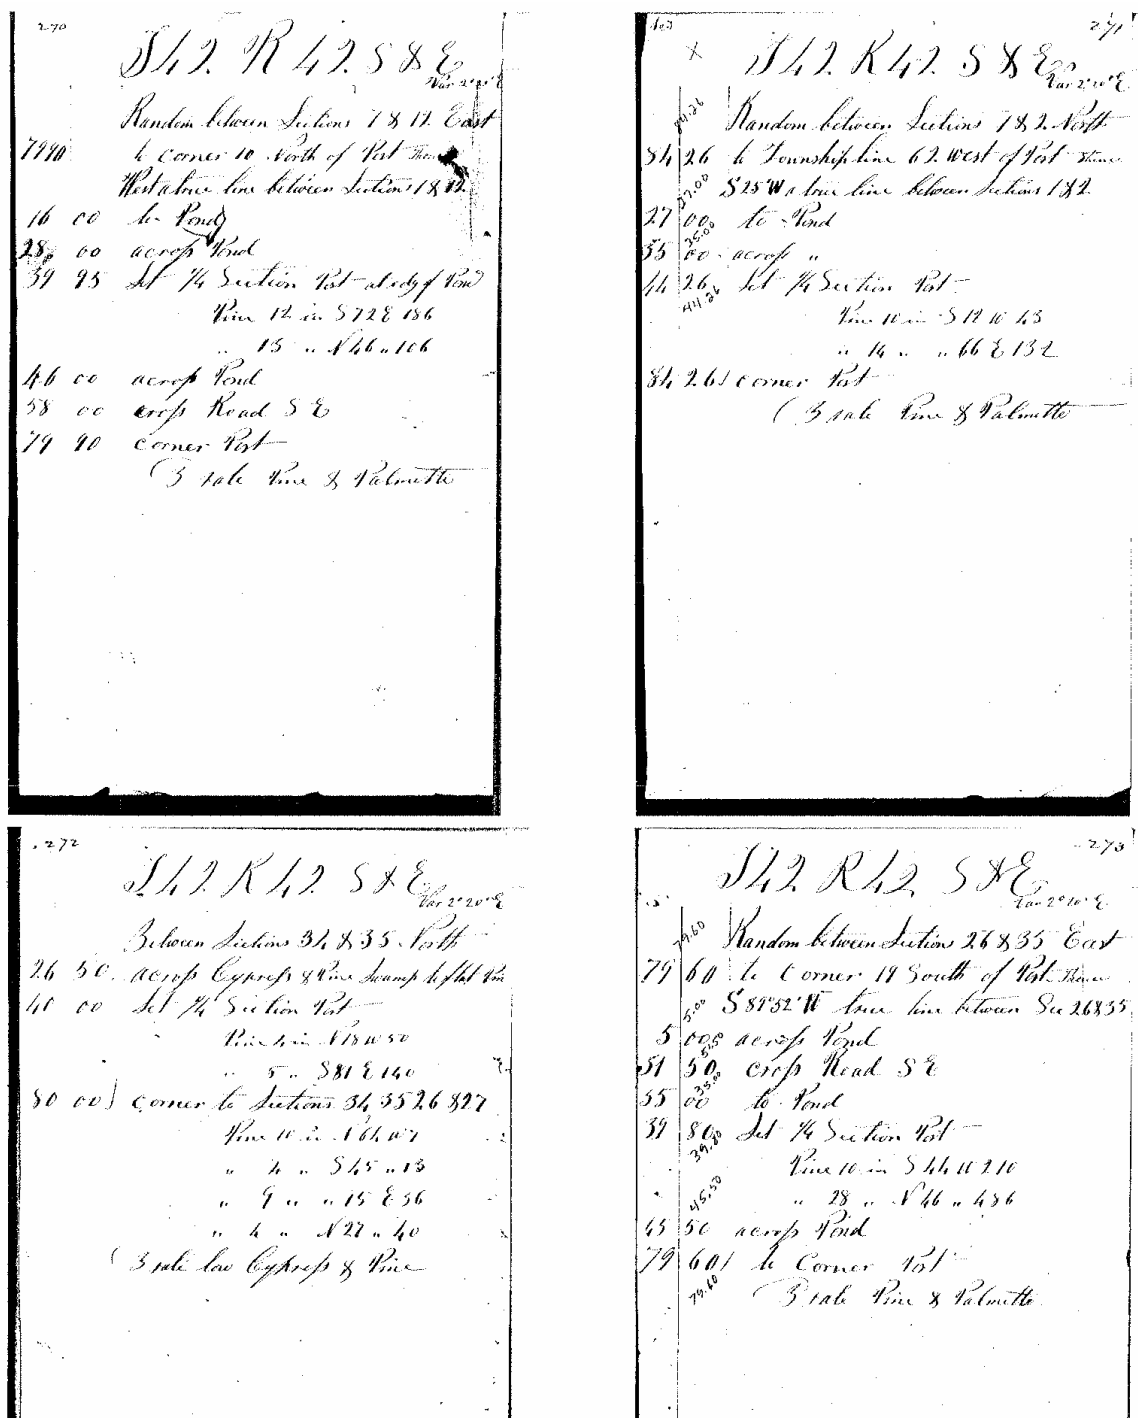 270
T 42. R 42. S & E
Var 2°20' E
Random between Sections 1 & 12 East
79 90 to Corner 10 North of Post Thence
West a true line between Sections 1 & 12
16 00 to Pond
28 00 across Pond
39 95 Set 1/4 Section Post at edge of Pond
Pine 12 in S 72 E 186
" 13 " N 46 " 106
46 00 across Pond
58 00 cross Road S E
79 90 Corner Post
3 rate Pine & Palmetto
271
T 42. R 42. S & E
Var 2°20' E
84.26
Random between Sections 1 & 2 North
84 26 to Township line 62 West of Post Thence
S 25' W a true line between Sections 1 & 2
27.00
27 00 to Pond
35.00
35 00 across "
44 26 Set 1/4 Section Post
44.26
Pine 10 in S 12 W 43
" 14 " " 66 E 132
84 26 corner Post
3 rate Pine & Palmetto
272
T 42 R 42 S & E
Var 2°20' E
Between Sections 34 & 35 North
26 50 across Cypress & Pine Swamp to flat Pine
40 00 Set 1/4 Section Post
Pine 4 in N 18 W 50
" 5 " S 81 E 140
80 00 Corner to Sections 34 35 26 & 27
Pine 10 in N 64 W 7
" 4 " S 45 " 13
" 9 " " 15 E 56
" 4 " N 27 " 40
3 rate low Cypress & Pine
273
T 42 R 42 S & E
Var 2°20' E
79.60
Random between Section 26 & 35 East
79 60 to Corner 19 South of Post Thence
S 89°52' W true line between Sec 26 & 35
5.00
5 00 across Pond
51 50 cross Road S E
35.00
35 00 to Pond
39 80 Set 1/4 Section Post
39.80
Pine 10 in S 44 W 210
" 28 " N 46 " 436
45.50
45 50 across Pond
79 60 to Corner Post
79.60
3 rate Pine & Palmetto